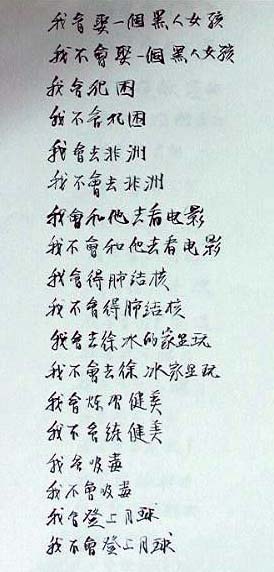 我會娶一個黑人女孩
我不會娶一個黑人女孩
我會犯困
我不會犯困
我會去非洲
我不會去非洲
我會和他去看电影
我不會和他去看电影
我會得肺结核
我不會得肺结核
我會去徐冰的家里玩
我不會去徐冰家里玩
我會炼習健美
我不會练健美
我會吸毒
我不會吸毒
我會登上月球
我不會登上月球